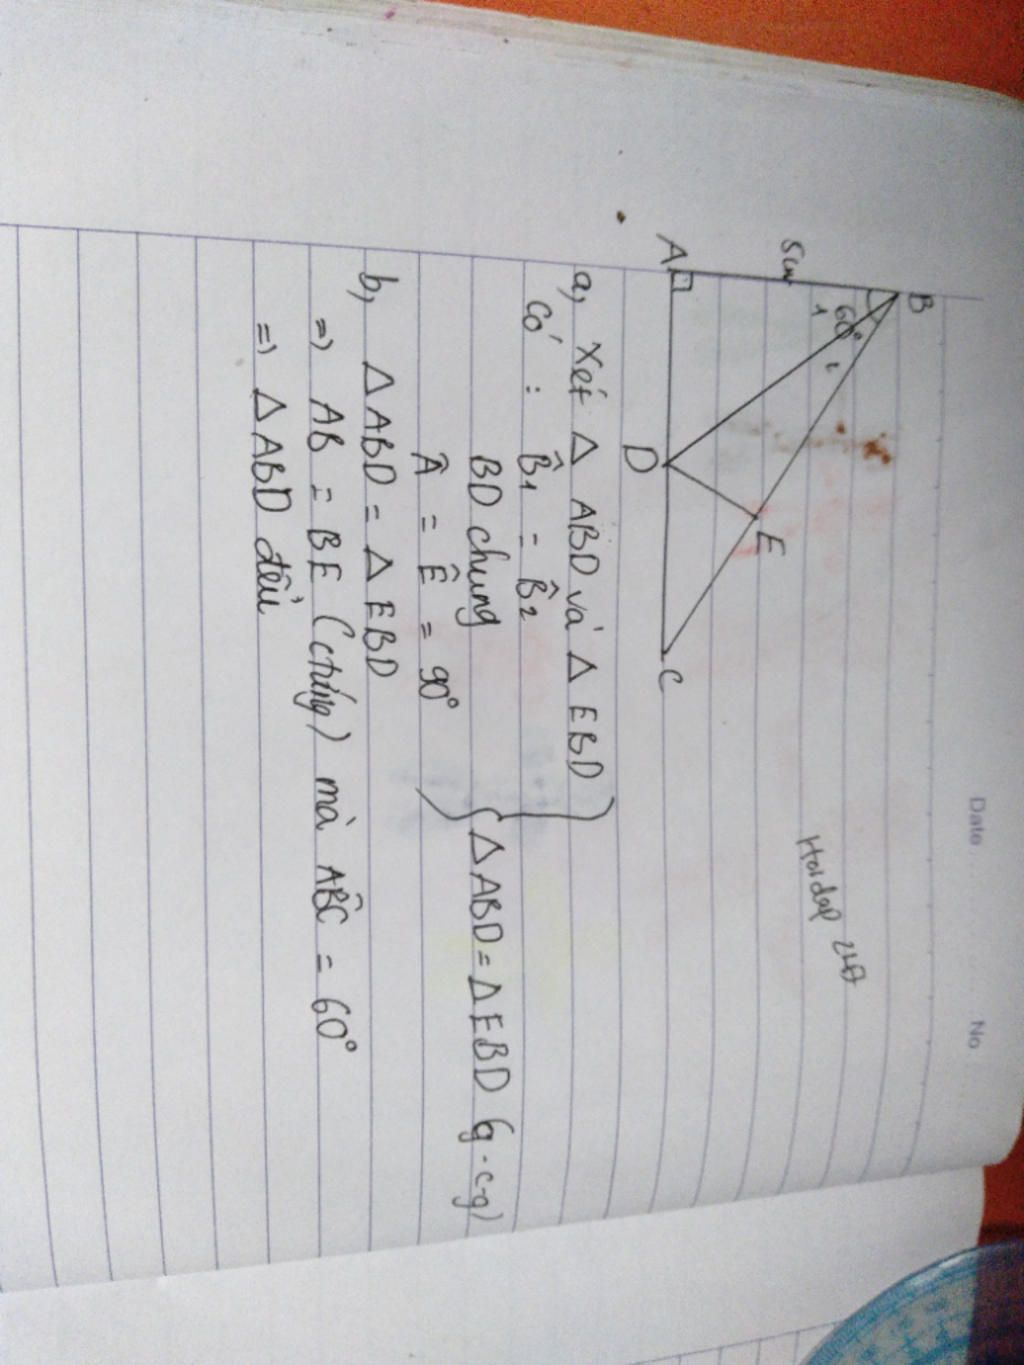 Date No
Hoidap 247
B
60°
5cm
1 2
E
A D C
a, Xét Δ ABD và Δ EBD
Có : B̂1 = B̂2
BD chung
Â = Ê = 90°
Δ ABD = Δ EBD (g.c-g)
b, Δ ABD = Δ EBD
=> AB = BE (chứng) mà ABĈ = 60°
=> Δ ABD đều